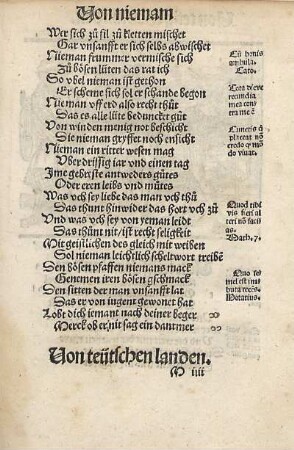 Von niemam
Wer sich zů fil zů kletten mischet
Gar vnsanfft er sich selbs abwischet
Nieman frummer vermische sich
Zů bösen lüten das rat ich
So vbel nieman ist gethon
Er scheme sich sol er schande begon
Nieman vff erd also recht thůt
Das es alle lüte bedunckēt gůt
Von winden menig not beschicht
Die nieman gryffet noch ensicht
Nieman ein ritter wesen mag
Vber drissig iar vnd einen tag
Im gebreste antweders gůtes
Oder eren leibs vnd můtes
Was vch sey liebe das man vch thů
Das thůnt hinwider das hort vch zů
Vnd was vch sey von yeman leidt
Das thůnt nit / ist recht seligkeit
Mit geistlichen des gleich mit weiben
Sol nieman leichtlich scheltwort treibē
Den bösen pfaffen niemans mack
Genemen iren bösen gschmack
Den sitten der man vnsanfft lat
Das er von iugent gewonet hat
Lobt dich iemant nach deiner beger
Merck ob er / nit sag ein dantmer
Cū bonis
ambula.
Cato.
Quod tibi
vis fieri al
teri
Math. 7.
Quo se
mel est im
buta recēs.
Von teütschen landen.
M iiii